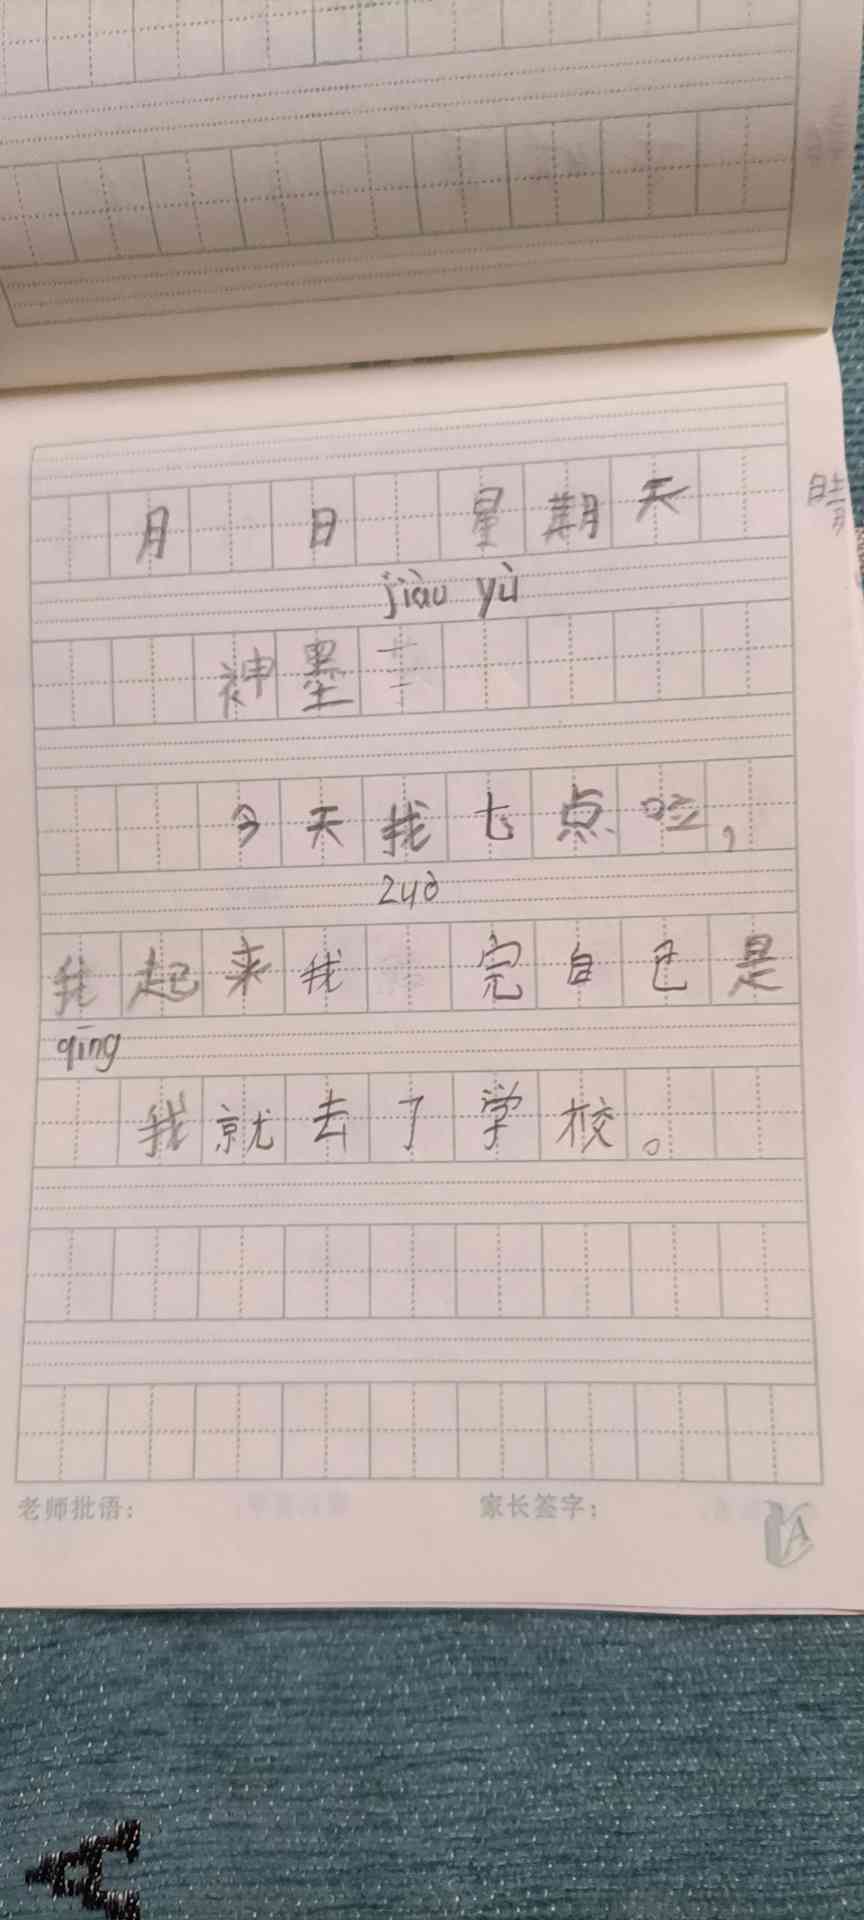 月 日 星期天 晴
jiào yù
神墨
今天我七点啦，
zuò
我起来我 完自己是
qīng
我就去了学校。
老师批语： 家长签字：